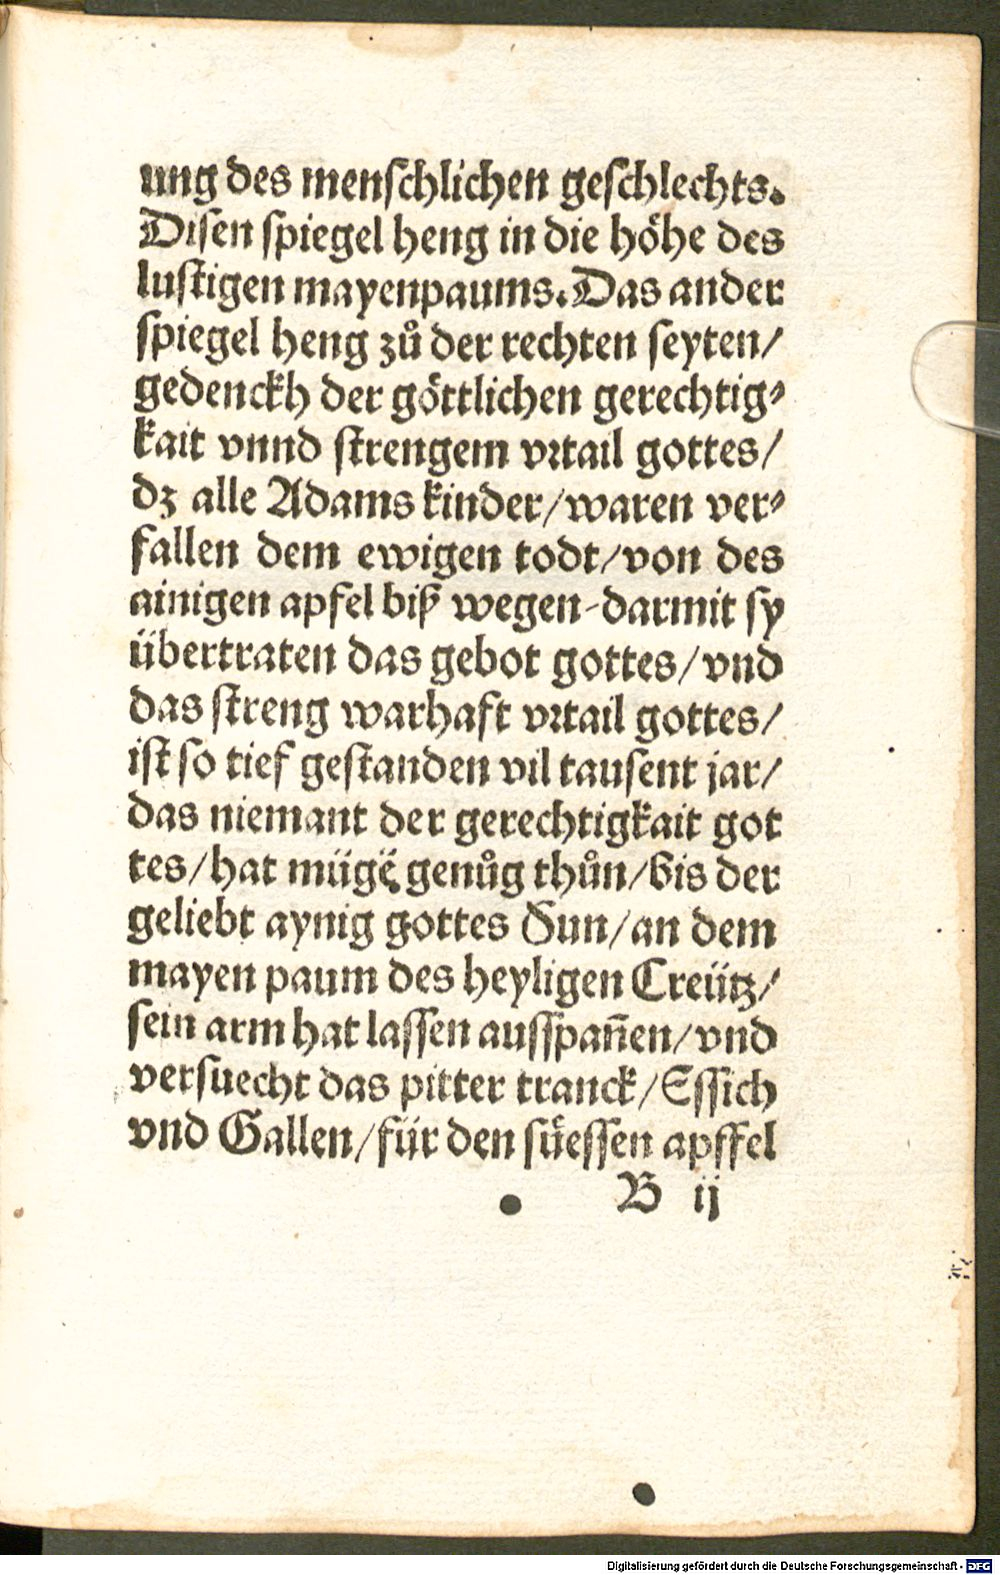 ung des menschlichen geschlechts.
Disen spiegel heng in die höhe des
lustigen mayenpaums. Das ander
spiegel heng zů der rechten seyten/
gedenckh der göttlichen gerechtig⸗
kait vnnd strengem vꝛtail gottes/
dz alle Adams kinder/waren ver⸗
fallen dem ewigen todt/von des
ainigen apfel biß wegen-darmit sy
übertraten das gebot gottes/vnd
das streng warhaft vꝛtail gottes/
ist so tief gestanden vil tausent jar/
das niemant der gerechtigkait got
tes/hat mügē genůg thůn/bis der
geliebt aynig gottes Sun/an dem
mayen paum des heyligen Creütz/
sein arm hat lassen ausspan̄en/vnd
versuecht das pitter tranck/Essich
vnd Gallen/für den süessen apffel
B ij
Digitalisierung gefördert durch die Deutsche Forschungsgemeinschaft - DFG